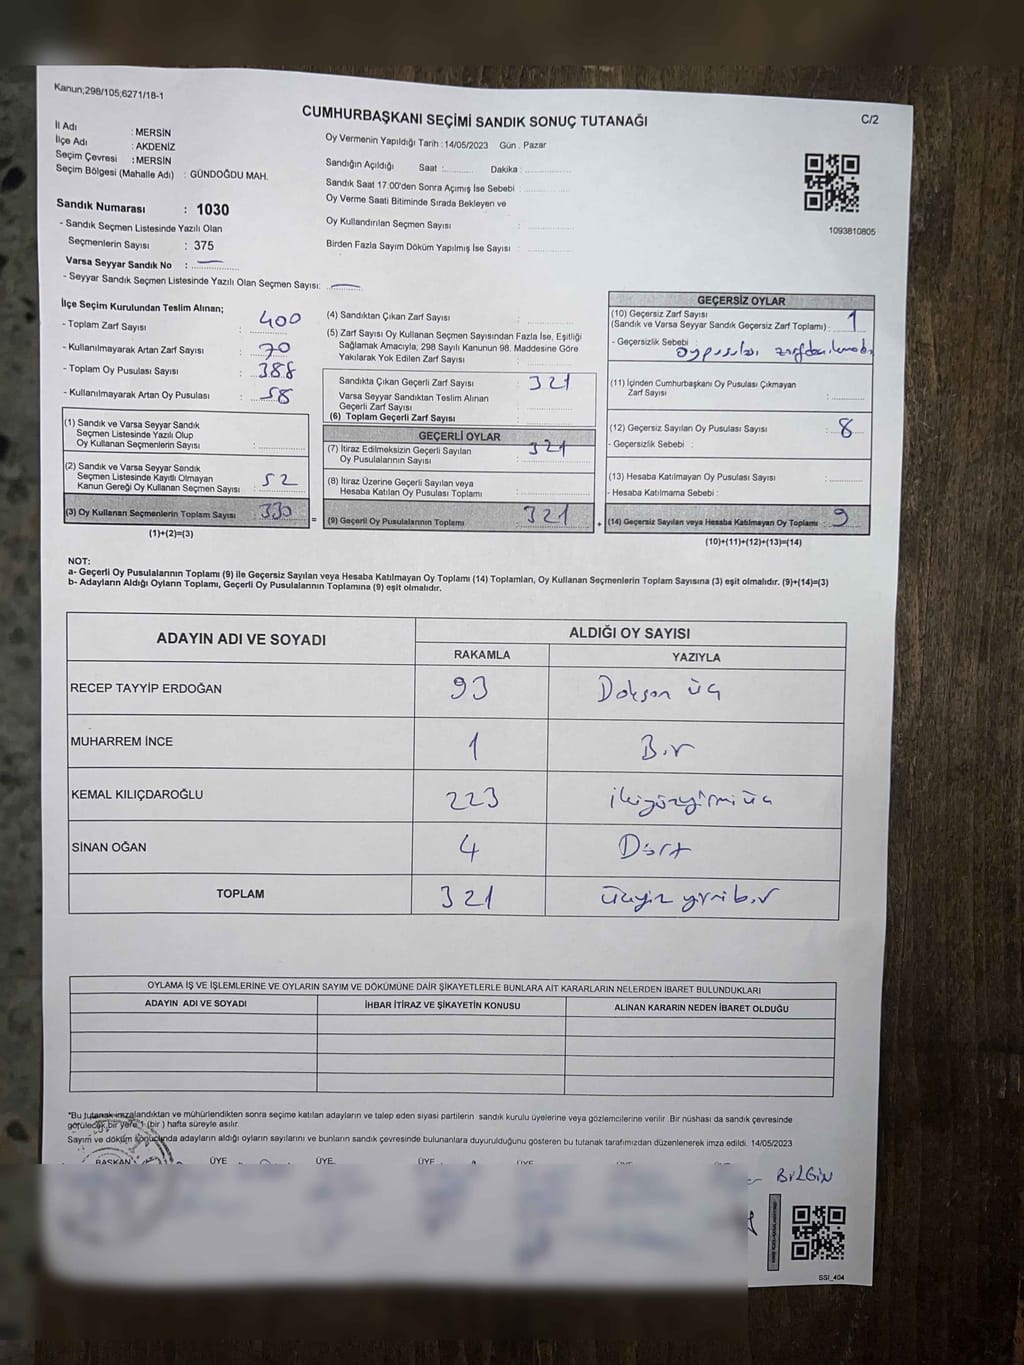 Kanun;298/105;6271/18-1
CUMHURBAŞKANI SEÇİMİ SANDIK SONUÇ TUTANAĞI
C/2
İl Adı : MERSİN
İlçe Adı : AKDENİZ
Seçim Çevresi : MERSİN
Seçim Bölgesi (Mahalle Adı) : GÜNDOĞDU MAH.
Oy Vermenin Yapıldığı Tarih : 14/05/2023 Gün . Pazar
Sandığın Açıldığı Saat : Dakika :
Sandık Saat 17:00'den Sonra Açımış İse Sebebi :
Oy Verme Saati Bitiminde Sırada Bekleyen ve
Oy Kullandırılan Seçmen Sayısı :
Birden Fazla Sayım Döküm Yapılmış İse Sayısı :
1093810805
Sandık Numarası : 1030
- Sandık Seçmen Listesinde Yazılı Olan
Seçmenlerin Sayısı : 375
Varsa Seyyar Sandık No : —
- Seyyar Sandık Seçmen Listesinde Yazılı Olan Seçmen Sayısı: —
İlçe Seçim Kurulundan Teslim Alınan;
- Toplam Zarf Sayısı : 400
- Kullanılmayarak Artan Zarf Sayısı : 70
- Toplam Oy Pusulası Sayısı : 388
- Kullanılmayarak Artan Oy Pusulası : 58
(1) Sandık ve Varsa Seyyar Sandık
Seçmen Listesinde Yazılı Olup
Oy Kullanan Seçmenlerin Sayısı :
(2) Sandık ve Varsa Seyyar Sandık
Seçmen Listesinde Kayıtlı Olmayan
Kanun Gereği Oy Kullanan Seçmen Sayısı : 52
(3) Oy Kullanan Seçmenlerin Toplam Sayısı 330
(1)+(2)=(3)
(4) Sandıktan Çıkan Zarf Sayısı :
(5) Zarf Sayısı Oy Kullanan Seçmen Sayısından Fazla İse, Eşitliği
Sağlamak Amacıyla, 298 Sayılı Kanunun 98. Maddesine Göre
Yakılarak Yok Edilen Zarf Sayısı :
Sandıkta Çıkan Geçerli Zarf Sayısı : 321
Varsa Seyyar Sandıktan Teslim Alınan
Geçerli Zarf Sayısı :
(6) Toplam Geçerli Zarf Sayısı
GEÇERLİ OYLAR
(7) İtiraz Edilmeksizin Geçerli Sayılan
Oy Pusulalarının Sayısı : 321
(8) İtiraz Üzerine Geçerli Sayılan veya
Hesaba Katılan Oy Pusulası Toplamı :
= (9) Geçerli Oy Pusulalarının Toplamı 321 +
GEÇERSİZ OYLAR
(10) Geçersiz Zarf Sayısı
(Sandık ve Varsa Seyyar Sandık Geçersiz Zarf Toplamı) : 1
- Geçersizlik Sebebi : oy pusulası
(11) İçinden Cumhurbaşkanı Oy Pusulası Çıkmayan
Zarf Sayısı :
(12) Geçersiz Sayılan Oy Pusulası Sayısı : 8
- Geçersizlik Sebebi :
(13) Hesaba Katılmayan Oy Pusulası Sayısı :
- Hesaba Katılmama Sebebi :
(14) Geçersiz Sayılan veya Hesaba Katılmayan Oy Toplamı 9
(10)+(11)+(12)+(13)=(14)
NOT:
a- Geçerli Oy Pusulalarının Toplamı (9) ile Geçersiz Sayılan veya Hesaba Katılmayan Oy Toplamı (14) Toplamları, Oy Kullanan Seçmenlerin Toplam Sayısına (3) eşit olmalıdır. (9)+(14)=(3)
b- Adayların Aldığı Oyların Toplamı, Geçerli Oy Pusulalarının Toplamına (9) eşit olmalıdır.
ADAYIN ADI VE SOYADI ALDIĞI OY SAYISI
RAKAMLA YAZIYLA
RECEP TAYYİP ERDOĞAN 93 Doksan üç
MUHARREM İNCE 1 Bir
KEMAL KILIÇDAROĞLU 223 ikiyüzyirmi üç
SİNAN OĞAN 4 Dört
TOPLAM 321 Üçyüz yirmi bir
OYLAMA İŞ VE İŞLEMLERİNE VE OYLARIN SAYIM VE DÖKÜMÜNE DAİR ŞİKAYETLERLE BUNLARA AİT KARARLARIN NELERDEN İBARET BULUNDUKLARI
ADAYIN ADI VE SOYADI İHBAR İTİRAZ VE ŞİKAYETİN KONUSU ALINAN KARARIN NEDEN İBARET OLDUĞU
*Bu tutanak imzalandıktan ve mühürlendikten sonra seçime katılan adayların ve talep eden siyasi partilerin sandık kurulu üyelerine veya gözlemcilerine verilir. Bir nüshası da sandık çevresinde
görülecek bir yere 1 (bir ) hafta süreyle asılır.
Sayım ve döküm sonucunda adayların aldığı oyların sayılarını ve bunların sandık çevresinde bulunanlara duyurulduğunu gösteren bu tutanak tarafımızdan düzenlenerek imza edildi. 14/05/2023
BAŞKAN ÜYE ÜYE ÜYE ÜYE
BİLGİN
SSI_404